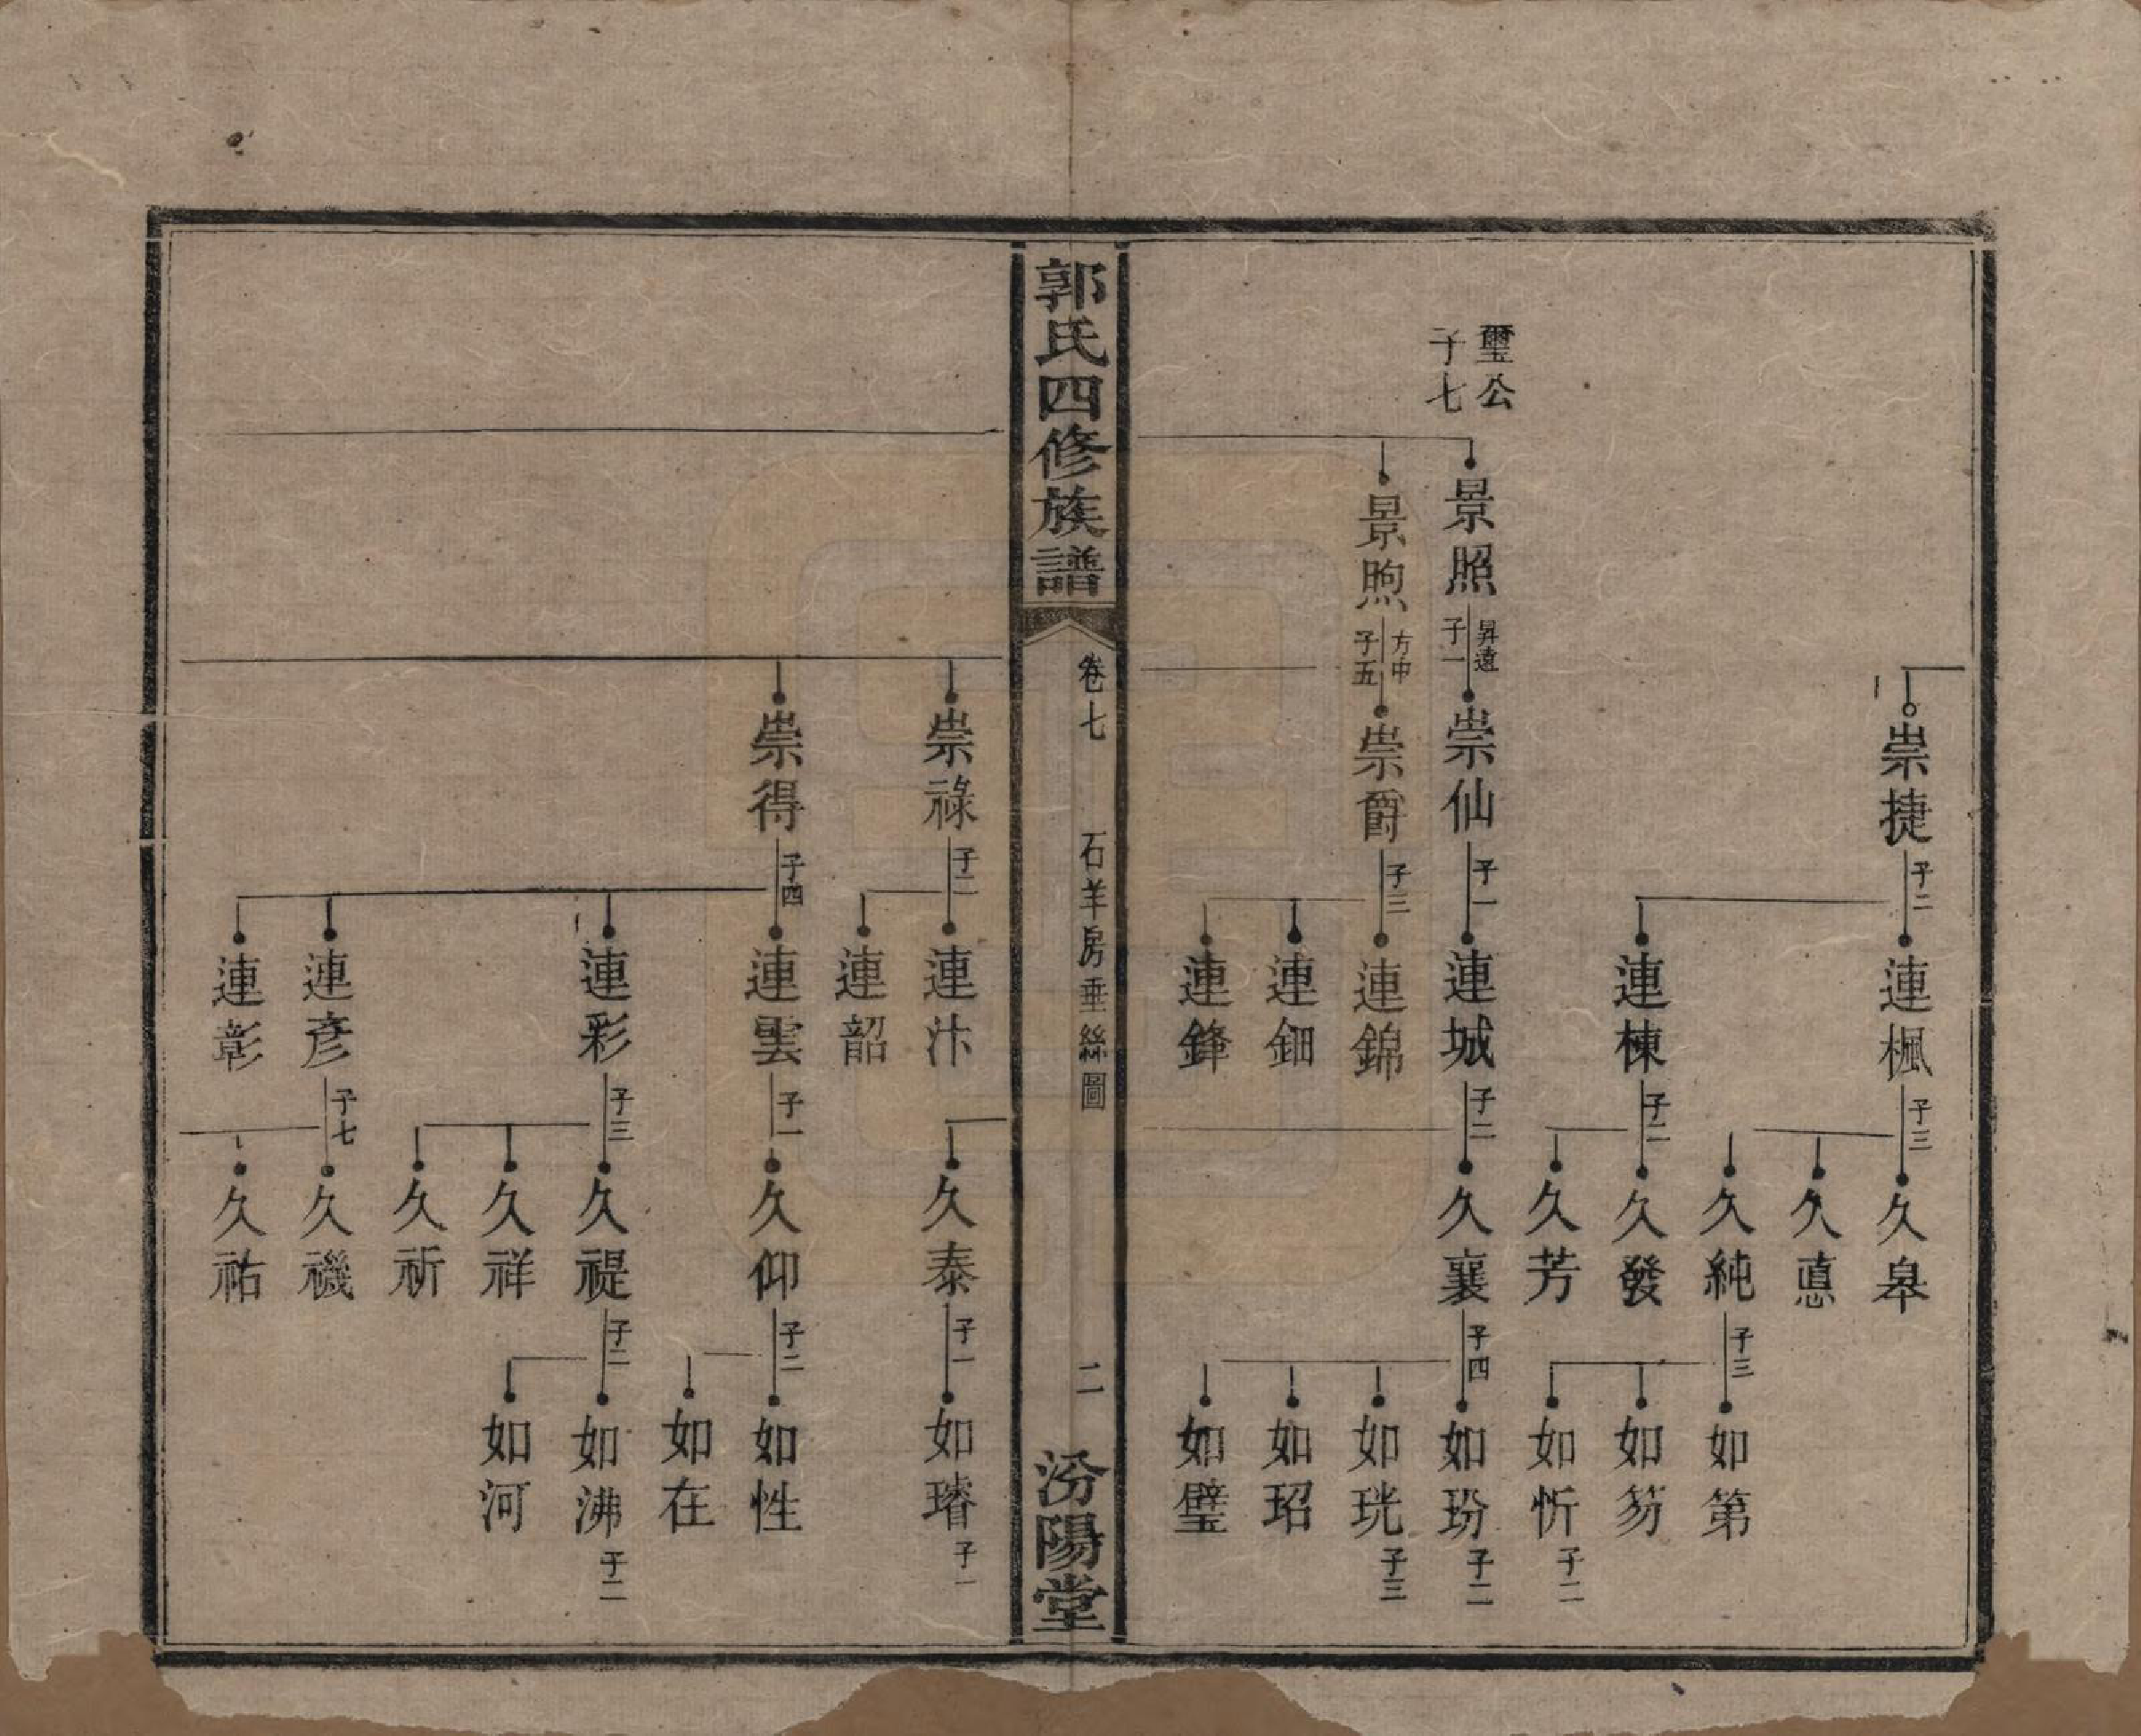 崇捷 子二
連楓 子三
久皋
久悳
久純 子三
如第
如竻
如忻 子二
連棟 子二
久發
久芳
璽公
子七
景照 昇遠 子一
崇仙 子一
連城 子二
久襄 子四
如玢 子二
如珖 子三
如玿
如璧
景煦 方中 子五
崇爵 子三
連錦
連鈿
連鋒
郭氏四修族譜
卷七 石羊房垂絲圖 二
汾陽堂
久泰 子一
如璿 子一
崇祿 子二
連汴
連韶
崇得 子四
連雲 子一
久仰 子二
如性
如在
連彩 子三
久禔 子二
如沸 子二
如河
久祥
久祈
連彥 子七
久禨
久祐
連彰